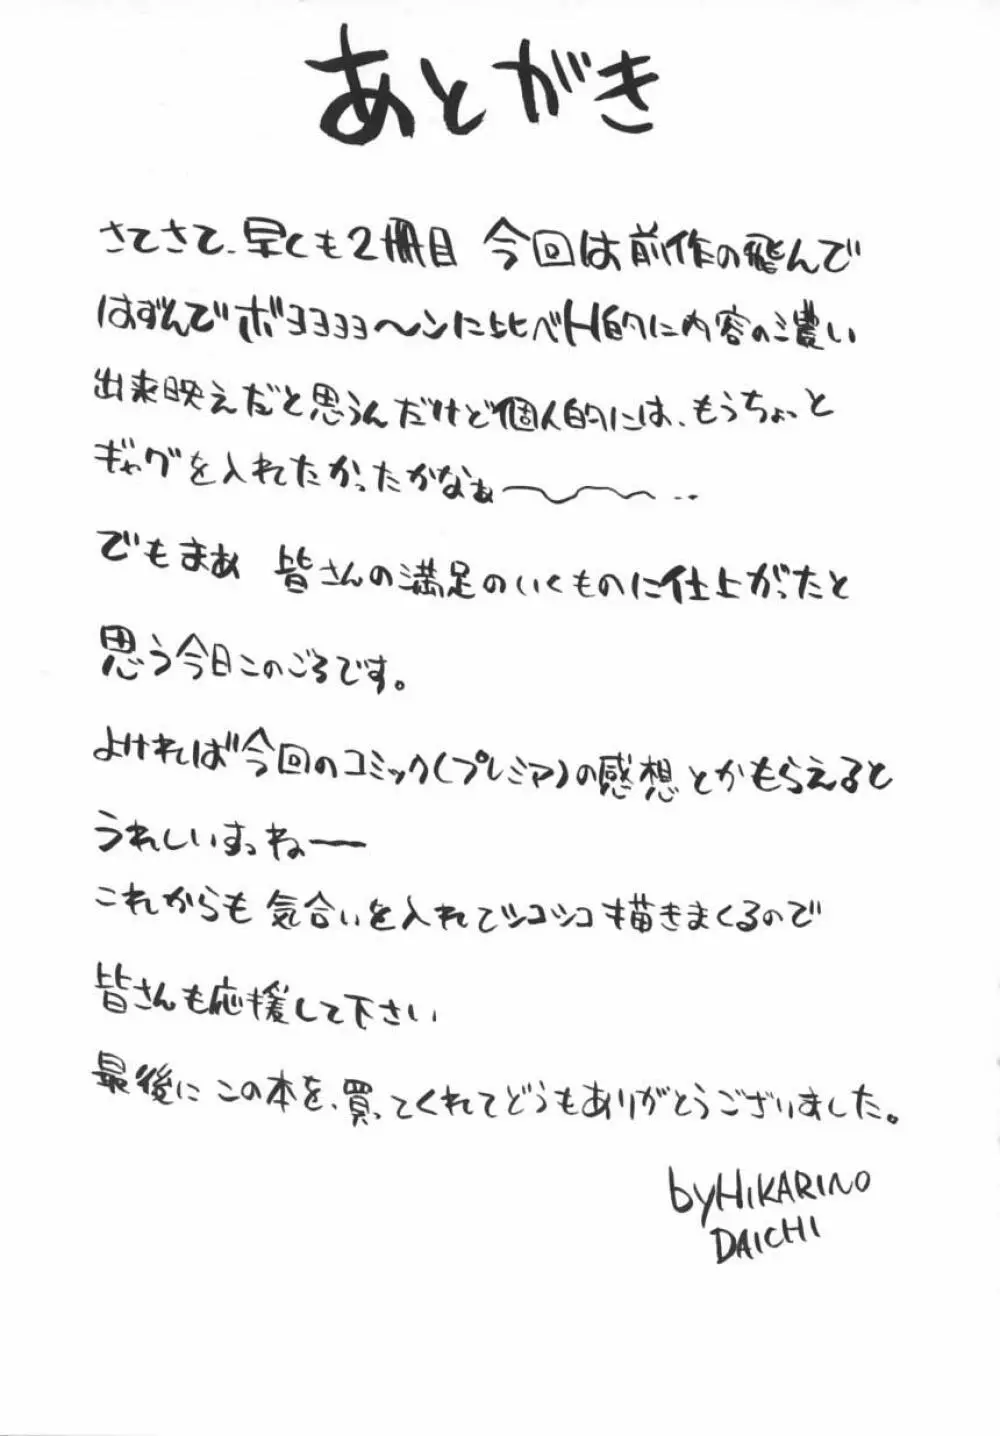 あとがき
さてさて、早くも2冊目 今回は前作の飛んで
はずんでボヨヨヨ〜ンに比べH的に内容の濃い
出来映えだと思うんだけど個人的には、もうちょっと
ギャグを入れたかったかなぁ〜〜〜‥
でもまあ 皆さんの満足のいくものに仕上がったと
思う今日このごろです。
よければ今回のコミック(プレミア)の感想とかもらえると
うれしいすっねー
これからも気合いを入れてシコシコ描きまくるので
皆さんも応援して下さい
最後に この本を、買ってくれてどうもありがとうございました。
byHIKARINO
DAICHI